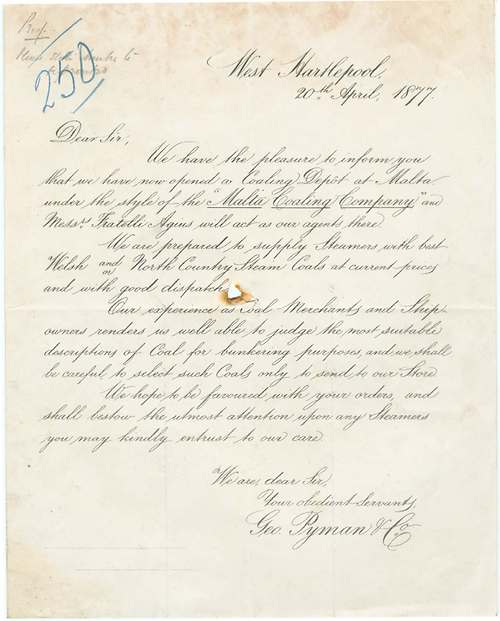 Proof
Please state number to
be printed
250
West Hartlepool,
20th April, 1877.
Dear Sir,
We have the pleasure to inform you
that we have now opened a Coaling Depôt at Malta
under the style of the "Malta Coaling Company" and
Messrs. Fratelli Agius will act as our agents there.
We are prepared to supply Steamers with best
Welsh and or North Country Steam Coals at current prices
and with good dispatch.
Our experience as Coal Merchants and Ship-
owners renders us well able to judge the most suitable
descriptions of Coal for bunkering purposes, and we shall
be careful to select such Coals only to send to our Store.
We hope to be favoured with your orders, and
shall bestow the utmost attention upon any Steamers
you may kindly entrust to our care.
We are, dear Sir,
Your obedient Servants,
Geo. Pyman & Co.